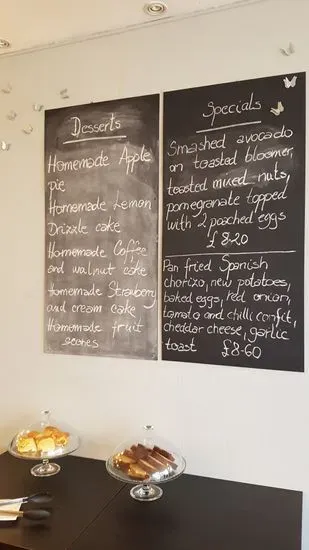 Desserts
Homemade Apple
pie
Homemade Lemon
Drizzle cake
Homemade Coffee
and walnut cake
Homemade Strawberry
and cream cake
Homemade fruit
scones
Specials
Smashed avocado
on toasted bloomer,
toasted mixed nuts,
pomegranate topped
with 2 poached eggs
£8.20
Pan fried Spanish
chorizo, new potatoes,
baked eggs, red onion,
tomato and chilli confit,
cheddar cheese, garlic
toast £8.60